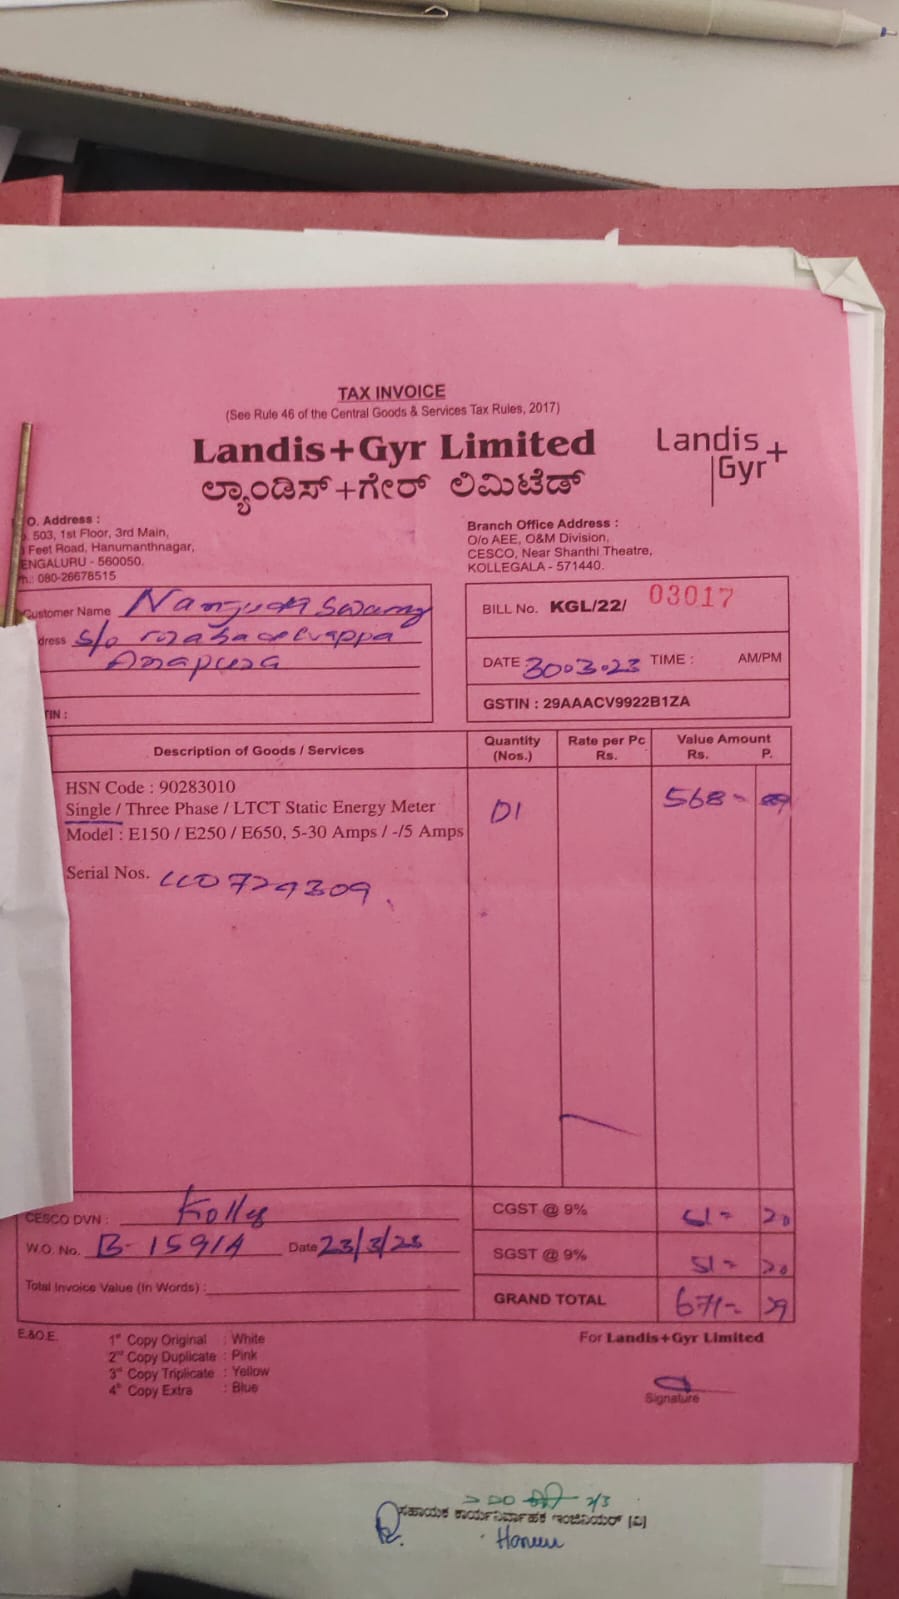 TAX INVOICE
(See Rule 46 of the Central Goods & Services Tax Rules, 2017)
Landis+Gyr Limited
ಲ್ಯಾಂಡಿಸ್+ಗೇರ್ ಲಿಮಿಟೆಡ್
Landis
Gyr+
O. Address :
503, 1st Floor, 3rd Main,
Feet Road, Hanumanthnagar,
ENGALURU - 560050.
080-26678515
Branch Office Address :
O/o AEE, O&M Division,
CESCO, Near Shanthi Theatre,
KOLLEGALA - 571440.
Customer Name
dress s/o
TIN :
BILL No. KGL/22/ 03017
DATE 30.3.23 TIME : AM/PM
GSTIN : 29AAACV9922B1ZA
Description of Goods / Services
Quantity (Nos.)
Rate per Pc Rs.
Value Amount Rs. P.
HSN Code : 90283010
Single / Three Phase / LTCT Static Energy Meter
Model : E150 / E250 / E650, 5-30 Amps / -/5 Amps
01 568-
Serial Nos.
CESCO DVN :
W.O. No. B-15914 Date 23/3/23
Total Invoice Value (In Words) :
CGST @ 9% 51= 20
SGST @ 9% 51= 20
GRAND TOTAL 671=
E.&O.E.
1st Copy Original : White
2nd Copy Duplicate : Pink
3rd Copy Triplicate : Yellow
4th Copy Extra : Blue
For Landis+Gyr Limited
Signature
ಸಹಾಯಕ ಕಾರ್ಯನಿರ್ವಾಹಕ ಇಂಜಿನಿಯರ್ [ವಿ]